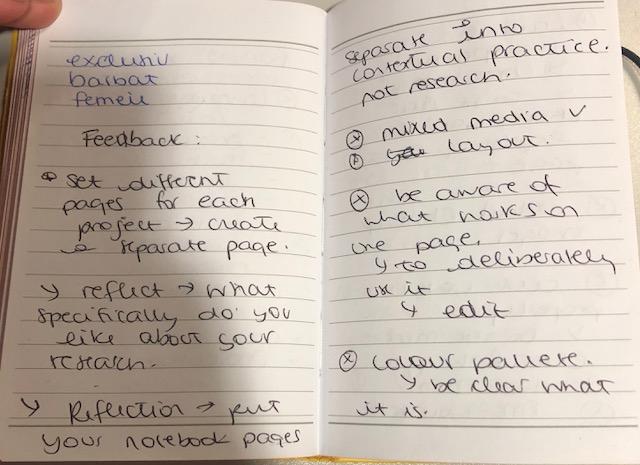 exclusiv
barbat
femeie
Feedback:
set different
pages for each
project → create
a separate page.
↳ reflect → what
specifically do you
like about your
research.
↳ Reflection → put
your notebook pages
separate into
contextual practice.
not research.
ⓧ mixed media ✓
ⓧ layout.
ⓧ be aware of
what works on
the page.
↳ to deliberately
use it
↳ edit
ⓧ colour pallete.
↳ be clear what
it is.